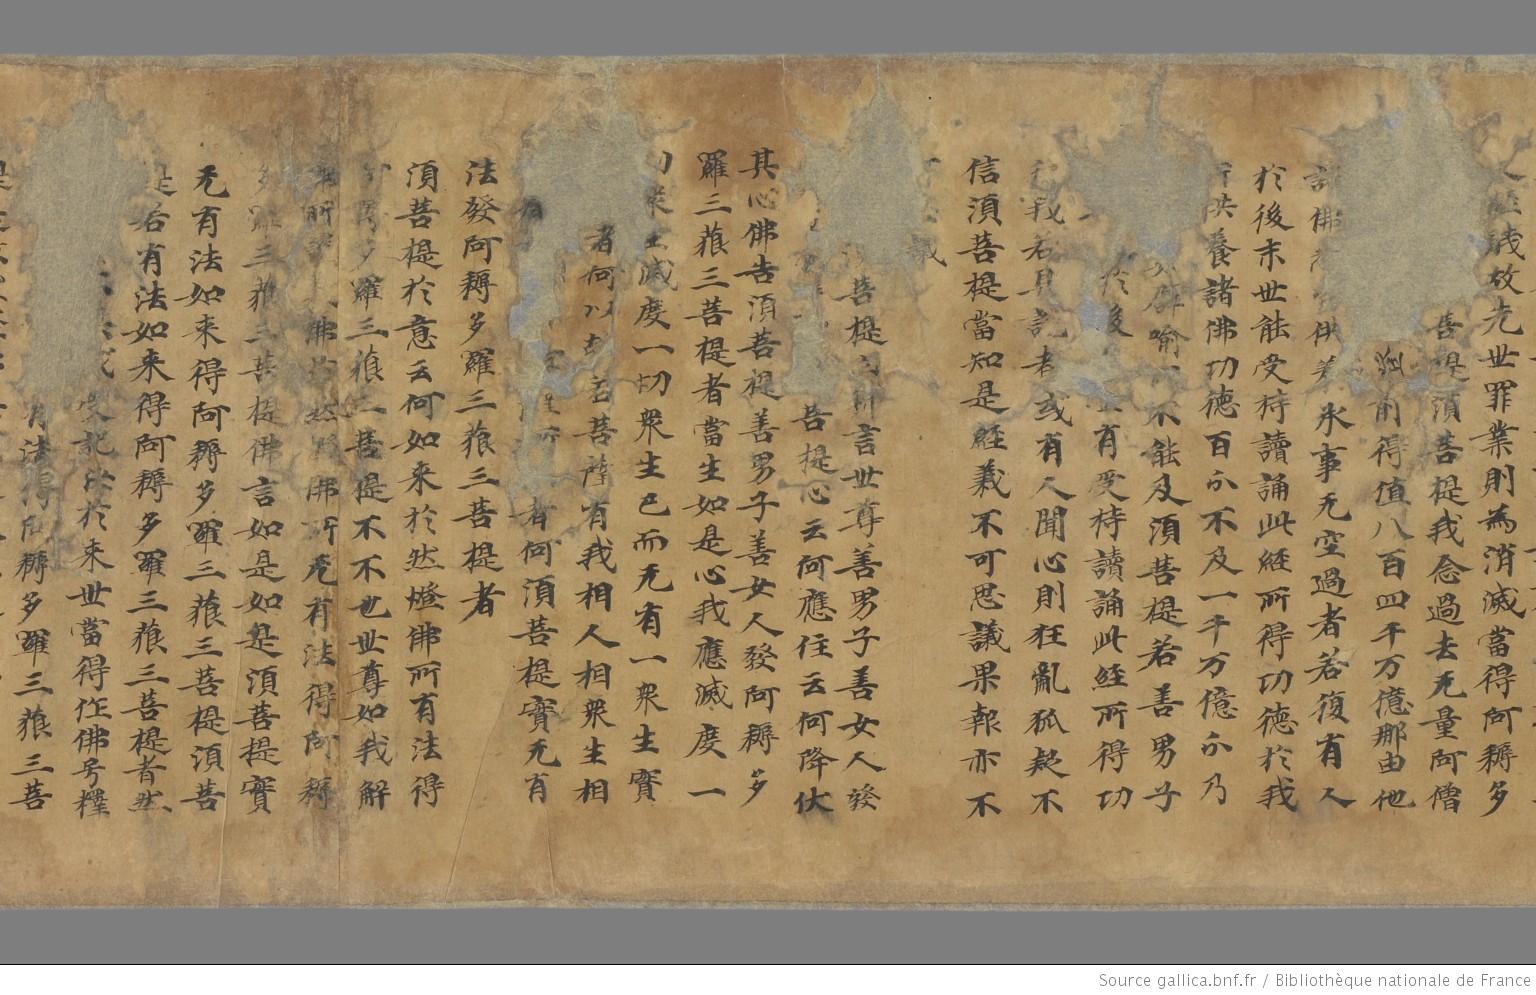 人輕賤故先世罪業則為消滅當得阿耨多
菩提須菩提我念過去无量阿僧
前得值八百四千万億那由他
諸佛悉皆供養承事无空過者若復有人
於後末世能受持讀誦此經所得功德於我
所供養諸佛功德百分不及一千万億分乃
譬喻所不能及須菩提若善男子
於後有受持讀誦此經所得功
我若具說者或有人聞心則狂亂狐疑不
信須菩提當知是經義不可思議果報亦不
議
菩提白佛言世尊善男子善女人發
菩提心云何應住云何降伏
其心佛告須菩提善男子善女人發阿耨多
羅三藐三菩提者當生如是心我應滅度一
切衆生滅度一切衆生已而无有一衆生實
者何以故若菩薩有我相人相衆生相
者何須菩提實无有
法發阿耨多羅三藐三菩提者
須菩提於意云何如来於然燈佛所有法得
多羅三藐三菩提不不也世尊如我解
佛所說佛於然燈佛所无有法得阿耨
多羅三藐三菩提佛言如是如是須菩提實
无有法如来得阿耨多羅三藐三菩提須菩
提若有法如来得阿耨多羅三藐三菩提者然
受記汝於来世當得作佛号釋
有法得阿耨多羅三藐三菩
Source gallica.bnf.fr / Bibliothèque nationale de France